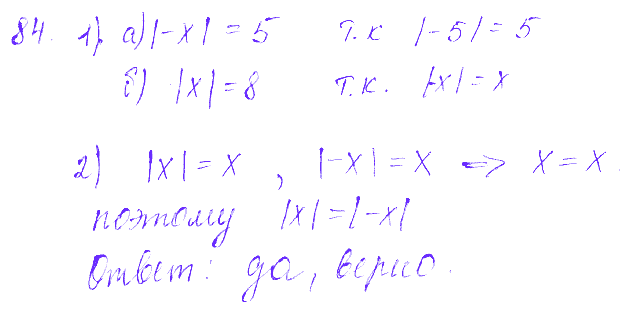 84. 1) а) |-x| = 5 т.к |-5| = 5
б) |x| = 8 т.к. |-x| = x
2) |x| = x , |-x| = x <=> x = x.
поэтому |x| = |-x|
Ответ: да, верно.